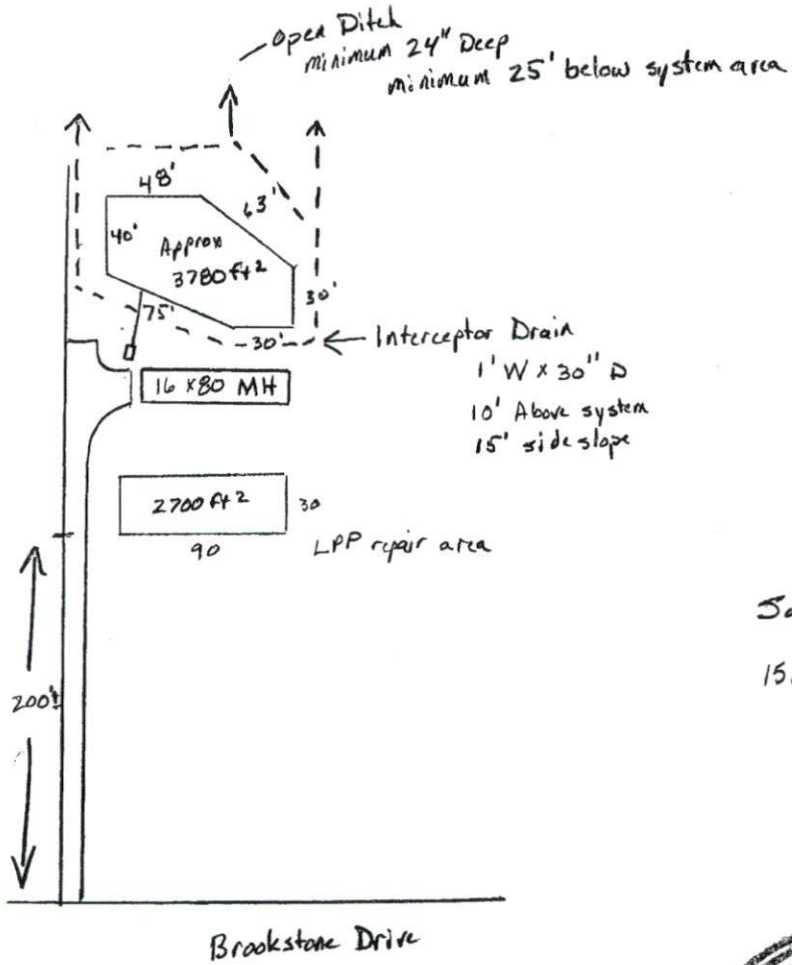 Open Ditch
minimum 24" Deep
minimum 25' below system area
48'
63'
40'
Approx
3780 ft²
30'
75'
30'
Interceptor Drain
1' W x 30" D
10' Above system
15' side slope
16 x 80 MH
2700 ft²
30
90
LPP repair area
200'±
15.
Brookstone Drive